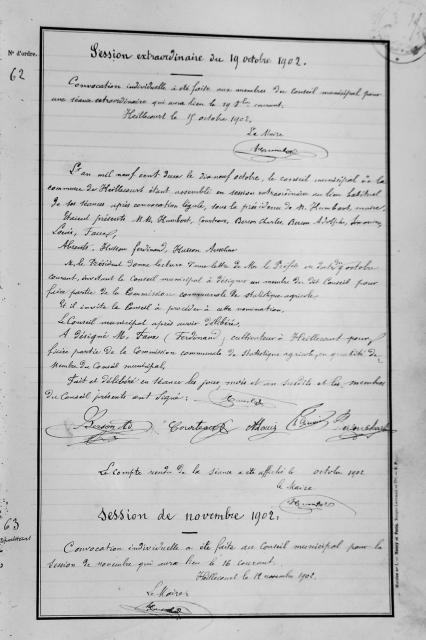 N° d'ordre.
62
Session extraordinaire du 19 octobre 1902.
Convocation individuelle a été faite aux membres du Conseil municipal pour
une séance extraordinaire qui aura lieu le 19 8bre courant.
Haillecourt le 15 octobre 1902.
Le Maire
Humbert
L'an mil neuf cent deux le dix neuf octobre, le conseil municipal de la
commune de Haillecourt étant assemblé en session extraordinaire au lieu habituel
de ses séances après convocation légale, sous la présidence de M. Humbert, maire.
Etaient présents M.M. Humbert, Courteaux, Berson Charles, Berson Adolphe,
Louis, Favre,
Absents, Husson Ferdinand, Husson
M. le Président donne lecture d'une lettre de Mr le Préfet en date du octobre
courant, invitant le Conseil municipal à désigner un membre du dit Conseil pour
faire partie de la Commission communale de statistique agricole.
Et il invite le Conseil à procéder à cette nomination.
Le Conseil municipal après avoir délibéré,
A désigné M. Favre (Ferdinand), cultivateur à Haillecourt pour
faire partie de la Commission communale de statistique agricole, en qualité de
Membre du Conseil municipal,
Fait et délibéré en séance les jour, mois et an susdits et les membres
du Conseil présents ont signé:
Humbert
Berson Ad Courteaux
Le compte rendu de la séance a été affiché le octobre 1902
Le Maire
Humbert
63
Session de novembre 1902.
Convocation individuelle a été faite au Conseil municipal pour la
session de novembre qui aura lieu le 16 courant.
Haillecourt le 12 novembre 1902.
Le Maire
Humbert